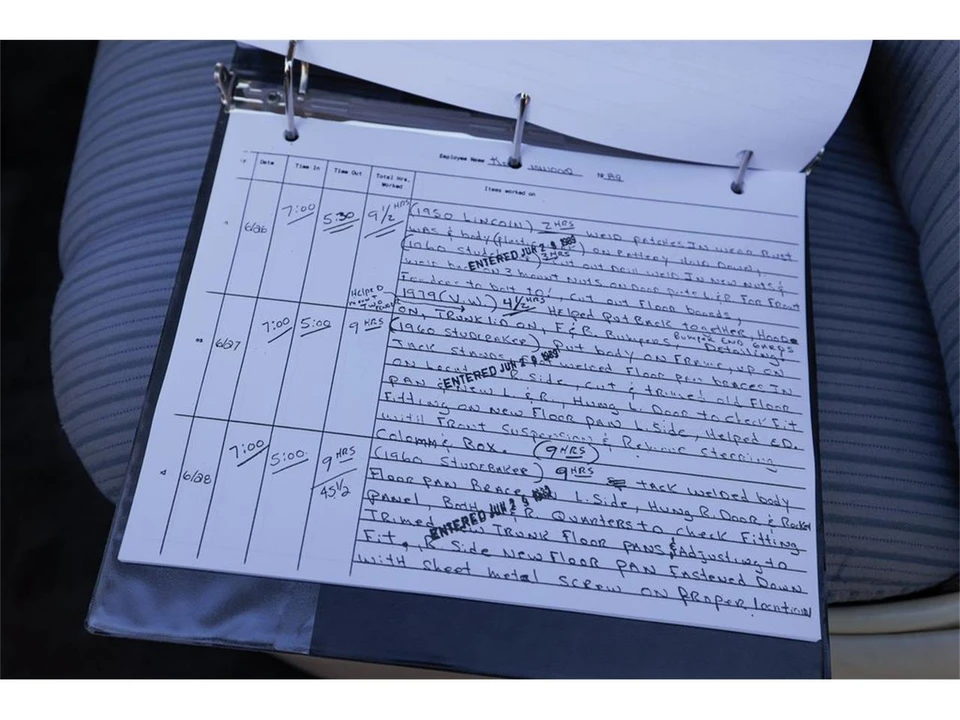 Employee Name 19 89
Date Time In Time Out Total Hrs. Worked Items worked on
6/26 7:00 5:30 9 1/2 HRS (1950 LINCOLN) 2 HRS WELD PATCHES IN WHERE RUST
WAS & body ON BATTERY HOLD DOWN,
ENTERED JUN 2 9 1989
(1960 3 HRS cut out WELD IN NEW NUTS &
3 mount NUTS ON DOOR L & R FOR FRONT
Fenders to bolt TO!, cut out Floor boards,
Helped
1979 (V.W) 4 1/2 HRS Helped Put Back together, Hood
ON, TRUNK lid ON, F & R Bumpers Bumper END GAPS Detailing
6/27 7:00 5:00 9 HRS (1960 STUDEBAKER) Put body ON Frame, up ON
Jack Stands welded Floor pan braces IN
ENTERED JUN 2 9 1989
ON Side, cut & trimed old Floor
PAN & New L & R, Hung L. Door to check Fit
Fitting ON NEW FLOOR PAN L. Side, Helped ED.
with Front Suspension & Steering
Colomn & Box. (9 HRS)
6/28 7:00 5:00 9 HRS (1960 STUDEBAKER) 9 HRS TACK WELDED body
45 1/2
FLOOR PAN BRACE L. Side, HUNG R. DOOR & Rocker
PANEL, BOTH R QUARTERS to check Fitting
ENTERED JUN 2 9 1989
Trimed TRUNK FLOOR PANS & Adjusting to
Fit, R Side NEW FLOOR PAN FASTENED DOWN
with sheet metal SCREW ON PROPER location